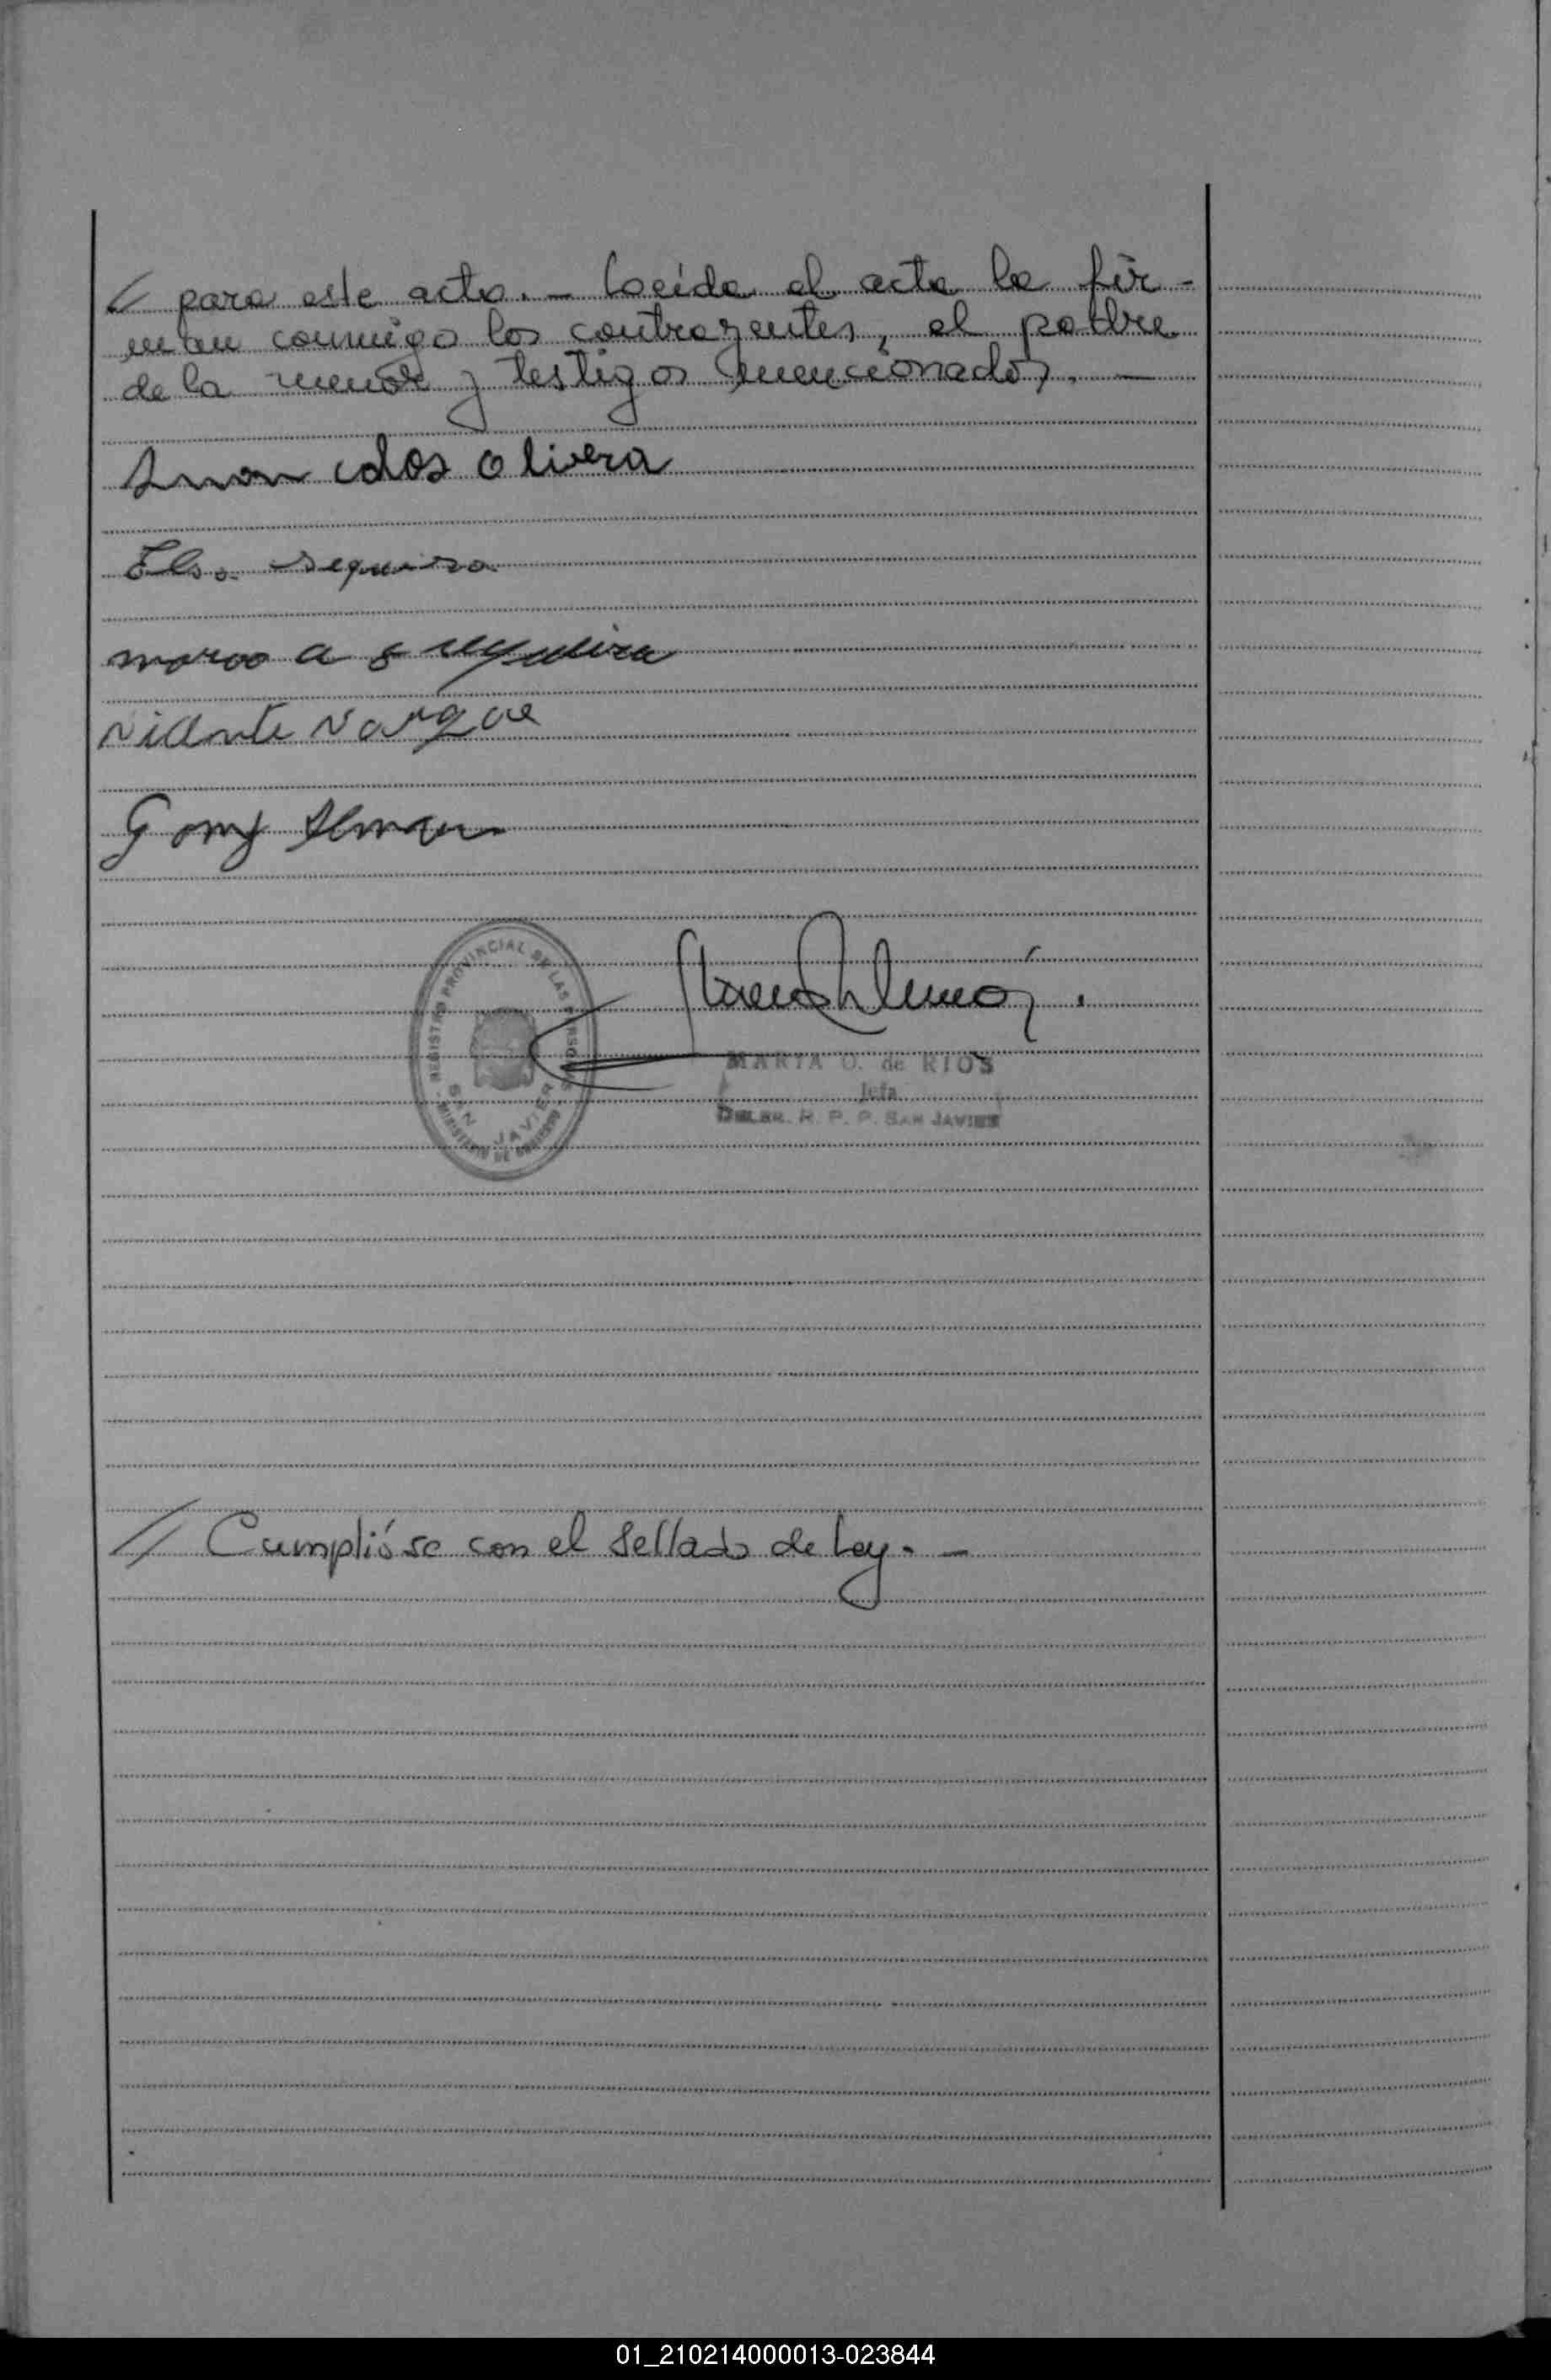 // para este acto. - Leída el acta la fir-
man conmigo los contrayentes, el padre
de la menor y testigos mencionados. -
Olivera
Elsa sequeira
a sequeira
Vicente Vargas
REGISTRO PROVINCIAL DE LAS PERSONAS
SAN JAVIER
MINISTERIO DE GOBIERNO
MARTA O. de RIOS
Jefa
DELEG. R. P. P. SAN JAVIER
// Cumplióse con el Sellado de Ley. -
01_210214000013-023844